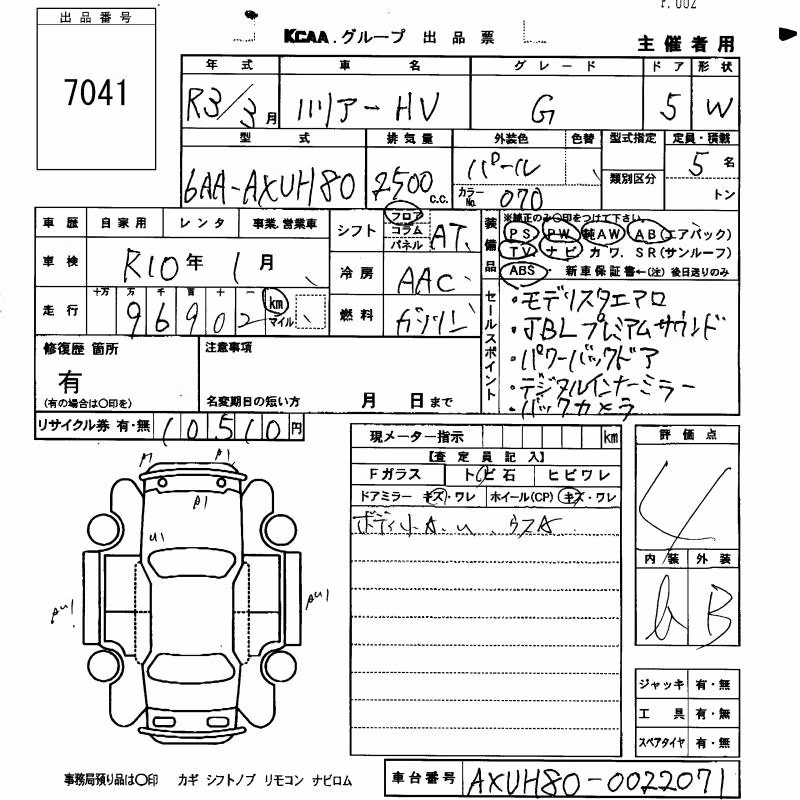 P.002
出品番号
7041
KCAA.グループ 出品票
主催者用
年式 車名 グレード ドア 形状
R3/3月 ハリアーHV G 5 W
型式 排気量 外装色 色替 型式指定 定員・積載
6AA-AXUH80 2500c.c. パール 5名
カラーNo. 070 類別区分 トン
車歴 自家用 レンタ 事業.営業車
車検 R10年 1月
走行 十万 万 千 百 十 一 km マイル
96902
シフト フロア コラム パネル AT
冷房 AAC
燃料 ガソリン
装備品 ※純正のみ○印をつけて下さい。
PS PW 純AW AB(エアバック)
TV. ナビ カワ. SR(サンルーフ)
ABS・ 新車保証書←(注)後日送りのみ
セールスポイント
・モデリスタエアロ
・JBLプレミアムサウンド
・パワーバックドア
・デジタルインナーミラー
・バックカメラ
修復歴 箇所
有
(有の場合は○印を)
注意事項
名変期日の短い方 月 日まで
リサイクル券 有・無 10510円
現メーター指示 km
【査定員記入】
Fガラス トビ石 ヒビワレ
ドアミラー キズ・ワレ ホイール(CP) キズ・ワレ
ボディ小A.U
評価点
4
内装 外装
b B
A1 A1
U1
AU1 AU1
ジャッキ 有・無
工具 有・無
スペアタイヤ 有・無
事務局預り品は○印 カギ シフトノブ リモコン ナビロム
車台番号 AXUH80-0022071